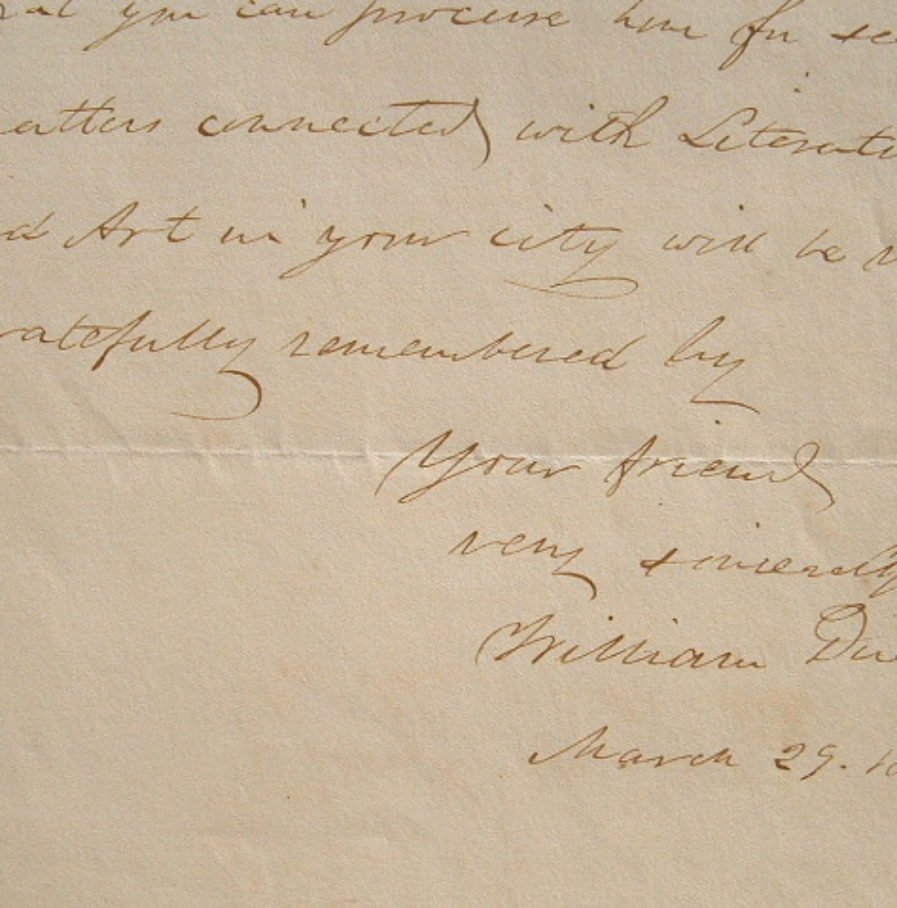 you can procure him for
atters connected with Literatu
d Art in your city will be
ratefully remembered by
Your friend
very sincerely
William Du
March 29. 18